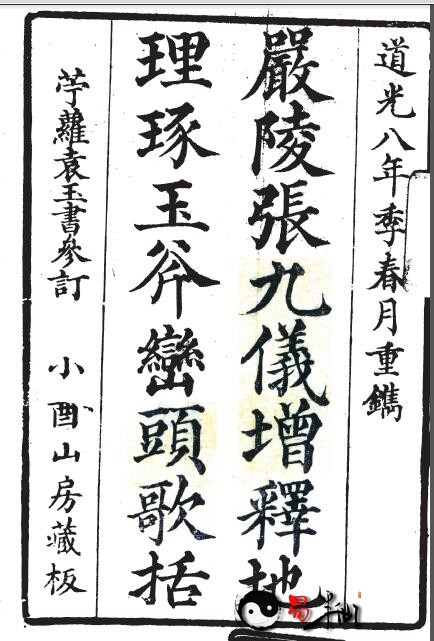 道光八年季春月重鐫
嚴陵張九儀增釋地
理琢玉斧巒頭歌括
苧蘿袁玉書參訂 小酉山房藏板